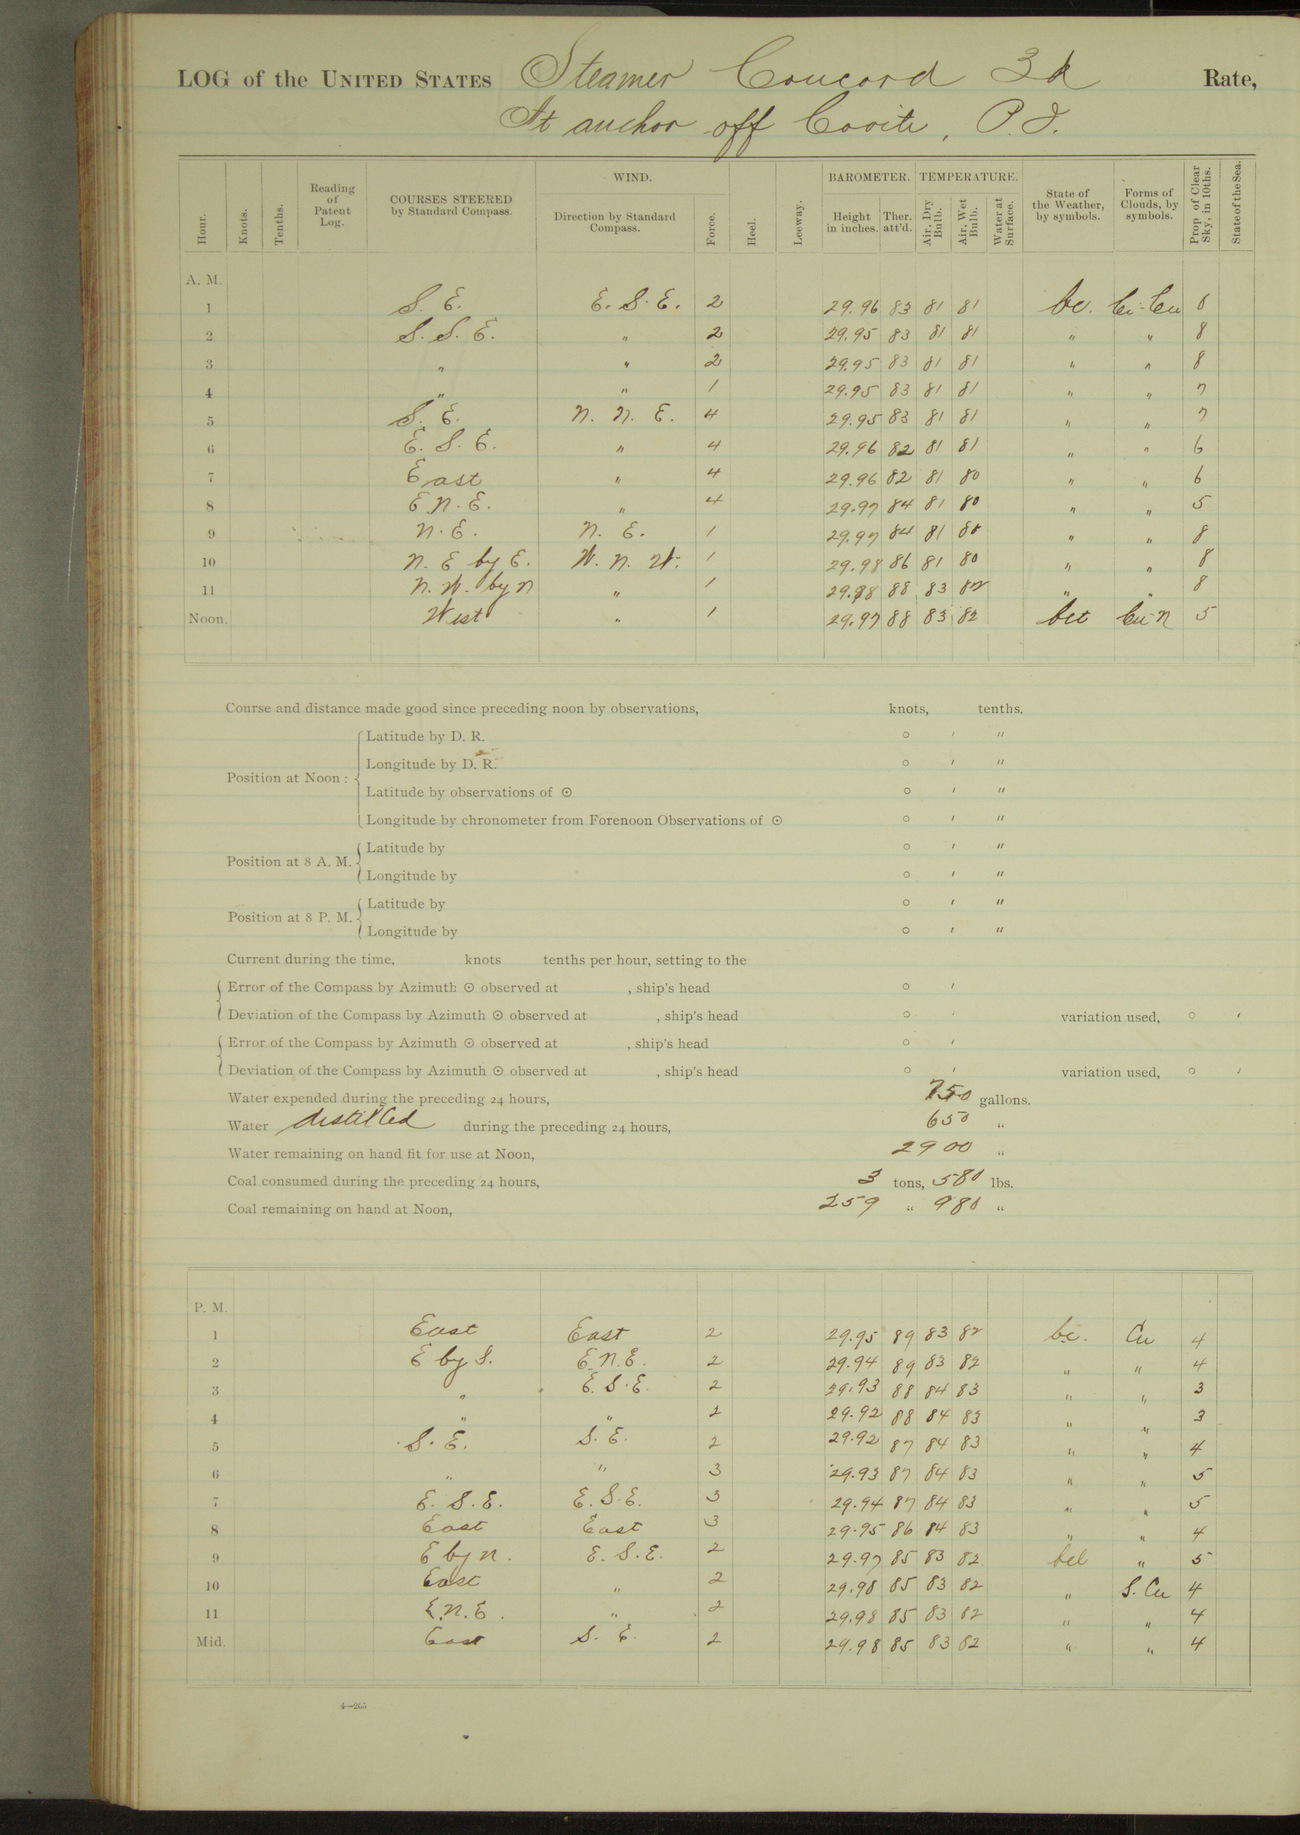 LOG of the UNITED STATES Steamer Concord 3d Rate,
At anchor off Cavite, P.I.
Hour. Knots. Tenths. Reading of Patent Log. COURSES STEERED by Standard Compass. WIND. Direction by Standard Compass. Force. Heel. Leeway. BAROMETER. Height in inches. Ther. att'd. TEMPERATURE. Air, Dry Bulb. Air, Wet Bulb. Water at Surface. State of the Weather, by symbols. Forms of Clouds, by symbols. Prop. of Clear Sky, in 10ths. State of the Sea.
A. M.
1 S. E. E. S. E. 2 29.96 83 81 81 bc. Ci-Cu 8
2 S. S. E. " 2 29.95 83 81 81 " " 8
3 " " 2 29.95 83 81 81 " " 8
4 " " 1 29.95 83 81 81 " " 7
5 S. E. N. N. E. 4 29.95 83 81 81 " " 7
6 E. S. E. " 4 29.96 82 81 81 " " 6
7 East " 4 29.96 82 81 80 " " 6
8 E. N. E. " 4 29.97 84 81 80 " " 5
9 N. E. N. E. 1 29.97 84 81 80 " " 8
10 N. E by E. W. N. W. 1 29.98 86 81 80 " " 8
11 N. W. by N " 1 29.98 88 83 82 " " 8
Noon. West " 1 29.97 88 83 82 Cu-N 5
Course and distance made good since preceding noon by observations, knots, tenths.
Position at Noon :
Latitude by D. R. ° ' "
Longitude by D. R. ° ' "
Latitude by observations of ☉ ° ' "
Longitude by chronometer from Forenoon Observations of ☉ ° ' "
Position at 8 A. M.
Latitude by ° ' "
Longitude by ° ' "
Position at 8 P. M.
Latitude by ° ' "
Longitude by ° ' "
Current during the time, knots tenths per hour, setting to the
Error of the Compass by Azimuth ☉ observed at , ship's head ° '
Deviation of the Compass by Azimuth ☉ observed at , ship's head ° ' variation used, ° '
Error of the Compass by Azimuth ☉ observed at , ship's head ° '
Deviation of the Compass by Azimuth ☉ observed at , ship's head ° ' variation used, ° '
Water expended during the preceding 24 hours, 750 gallons.
Water distilled during the preceding 24 hours, 650 "
Water remaining on hand fit for use at Noon, 2900 "
Coal consumed during the preceding 24 hours, 3 tons, 580 lbs.
Coal remaining on hand at Noon, 259 " 980 "
P. M.
1 East East 2 29.95 89 83 82 bc. Cu 4
2 E by S. E. N. E. 2 29.94 89 83 82 " " 4
3 " E. S. E. 2 29.93 88 84 83 " " 3
4 " " 2 29.92 88 84 83 " " 3
5 S. E. S. E. 2 29.92 87 84 83 " " 4
6 " " 3 29.93 87 84 83 " " 5
7 E. S. E. E. S. E. 3 29.94 87 84 83 " " 5
8 East East 3 29.95 86 84 83 " " 4
9 E by N. E. S. E. 2 29.97 85 83 82 bcl " 5
10 East " 2 29.98 85 83 82 " S. Cu 4
11 E. N. E. " 2 29.98 85 83 82 " " 4
Mid. East S. E. 2 29.98 85 83 82 " " 4
4—265